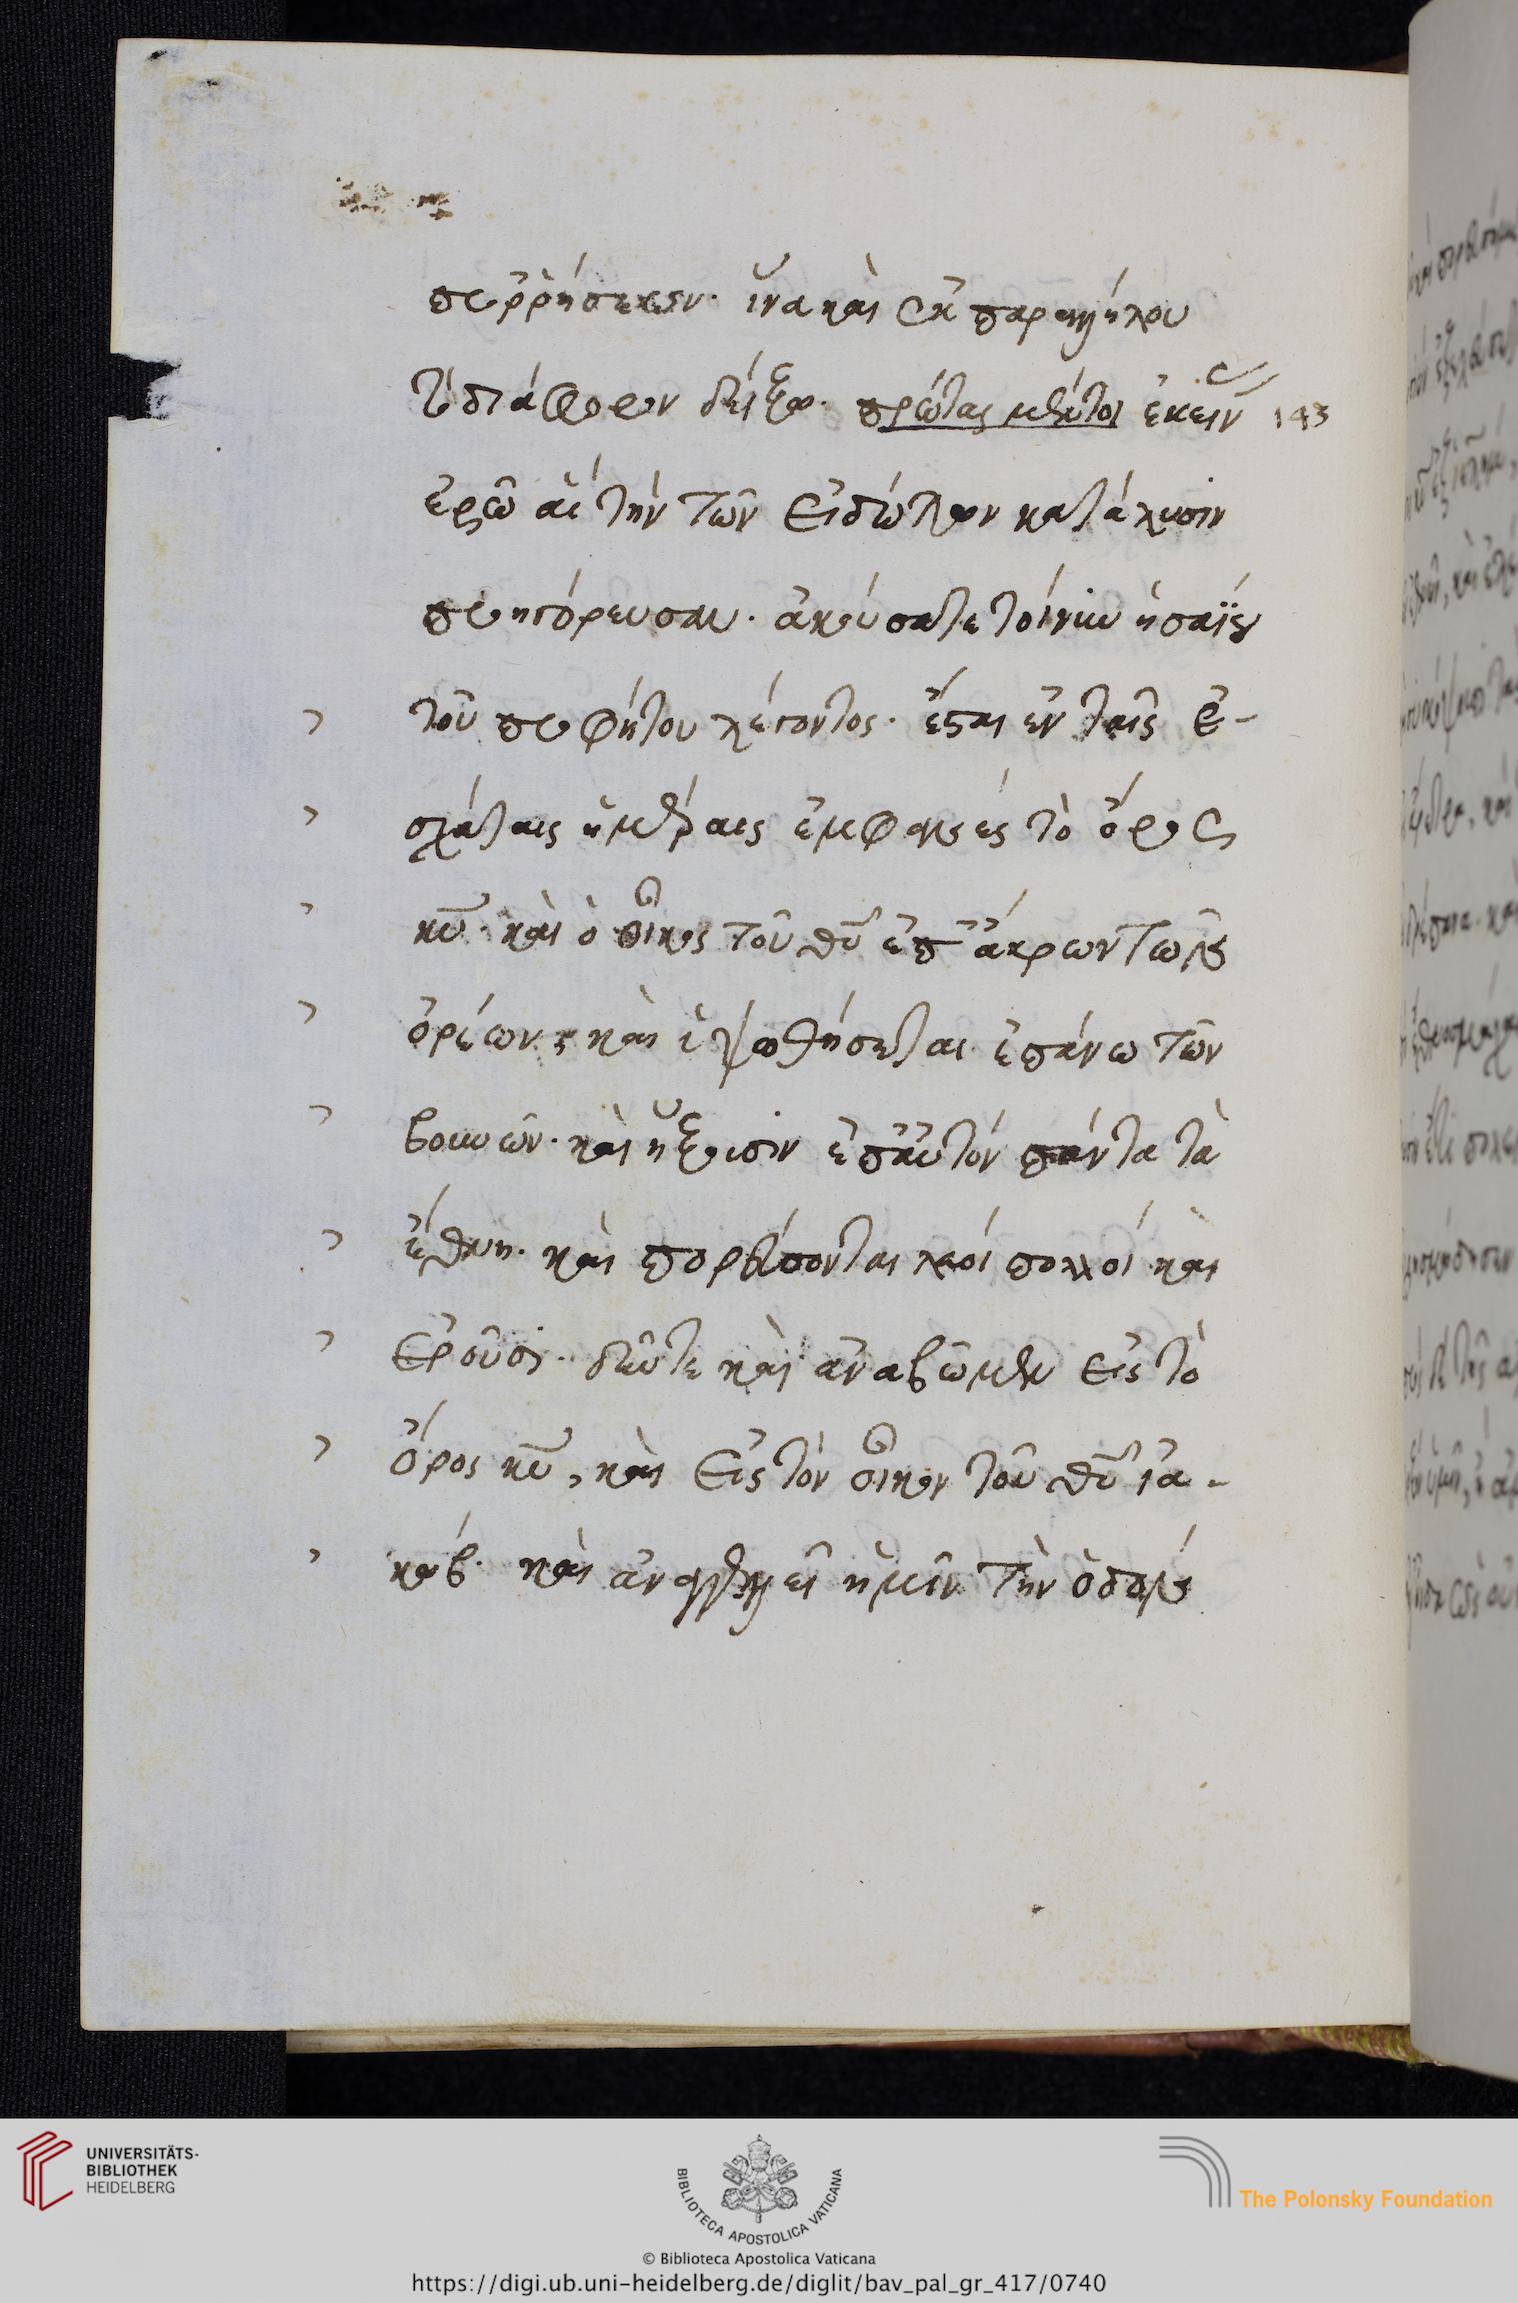 προρρήσεων. ἵνα καὶ ἐκ παραλλήλου
τὸ διάφορον δείξω. πρώτας μέντοι ἐκείν
143
ἐρῶ αἳ τὴν τῶν εἰδώλων κατάλυσιν
προηγόρευσαν. ἀκούσατε τοίνυν ἡσαΐου
τοῦ προφήτου λέγοντος. ἔσται ἐν ταῖς ἐ-
σχάταις ἡμέραις ἐμφανὲς τὸ ὄρος
κυ̅. καὶ ὁ οἶκος τοῦ θυ̅ ἐπ' ἄκρων τῶν
ὀρέων, καὶ ὑψωθήσεται ἐπάνω τῶν
βουνῶν. καὶ ἥξουσιν ἐπ' αὐτὸν πάντα τὰ
ἔθνη. καὶ πορεύσονται λαοὶ πολλοὶ καὶ
ἐροῦσι. δεῦτε καὶ ἀναβῶμεν εἰς τὸ
ὄρος κυ̅, καὶ εἰς τὸν οἶκον τοῦ θυ̅ ἰα-
κώβ. καὶ ἀναγγελεῖ ἡμῖν τὴν ὁδὸν
UNIVERSITÄTS-
BIBLIOTHEK
HEIDELBERG
BIBLIOTECA APOSTOLICA VATICANA
The Polonsky Foundation
© Biblioteca Apostolica Vaticana
https://digi.ub.uni-heidelberg.de/diglit/bav_pal_gr_417/0740